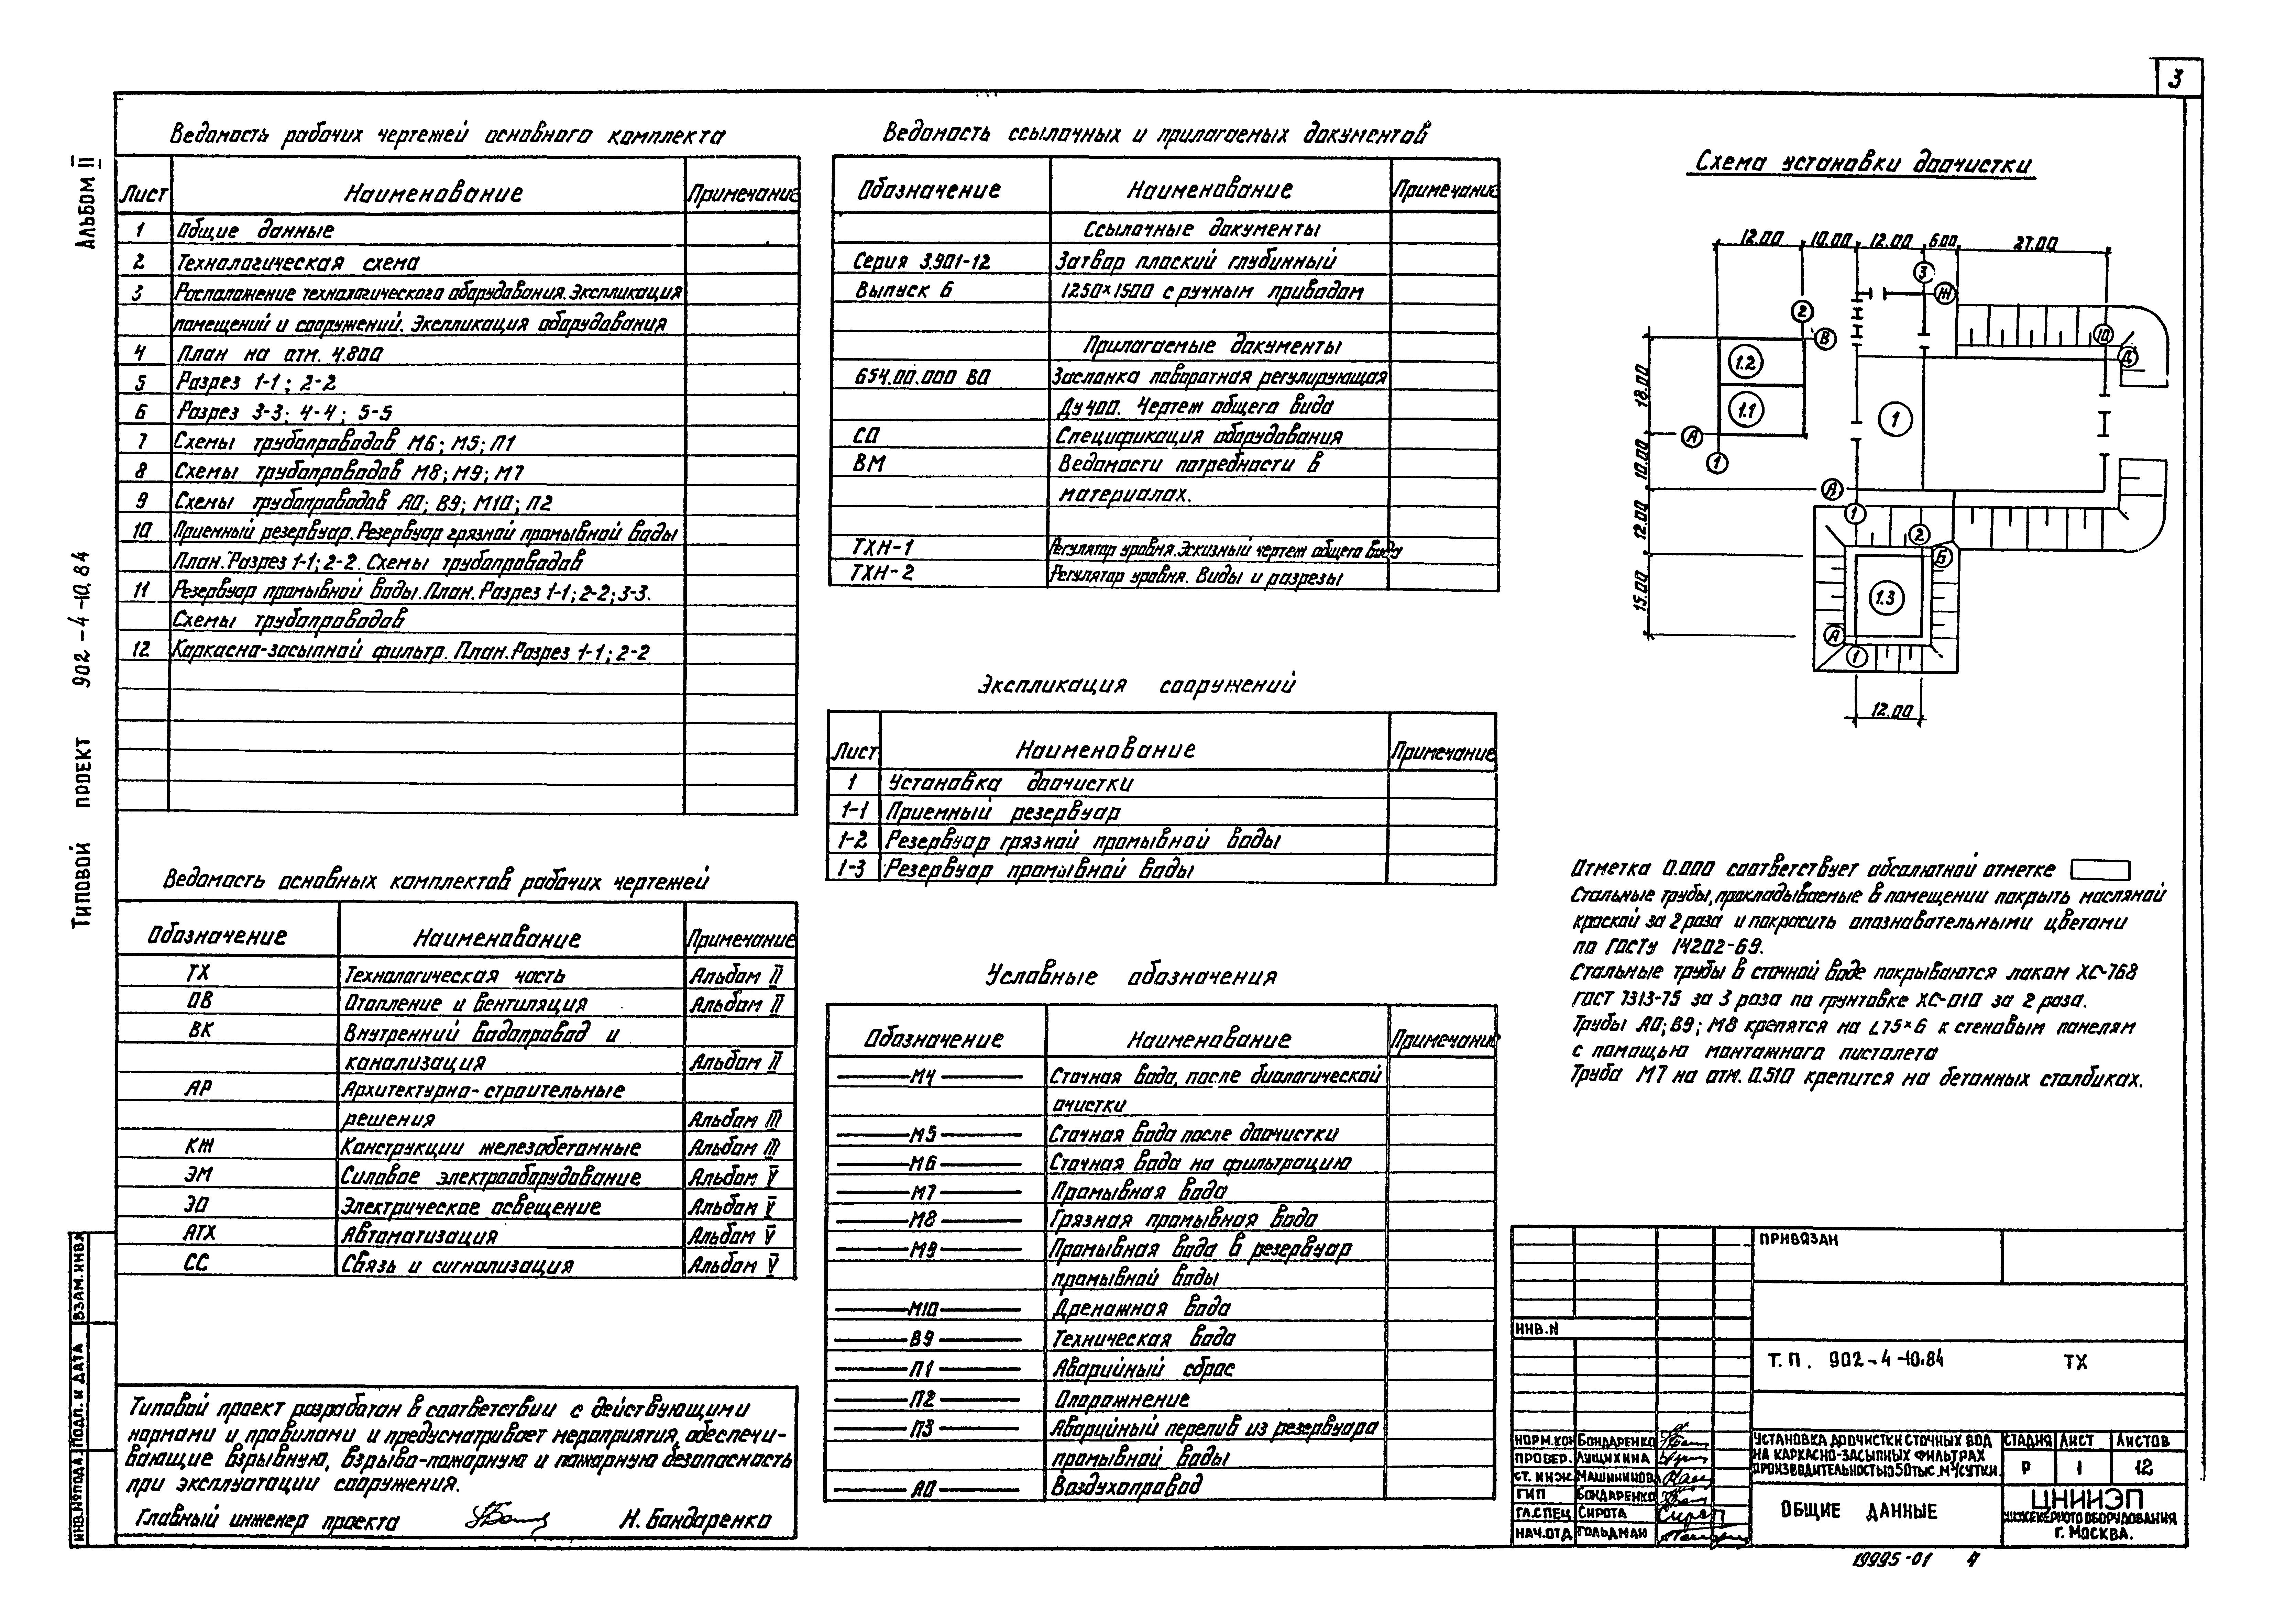 3
Альбом II
Типовой проект 902-4-10.84
Ведомость рабочих чертежей основного комплекта
Лист Наименование Примечание
1 Общие данные
2 Технологическая схема
3 Расположение технологического оборудования. Экспликация
помещений и сооружений. Экспликация оборудования
4 План на отм. 4.800
5 Разрез 1-1; 2-2
6 Разрез 3-3; 4-4; 5-5
7 Схемы трубопроводов М6; М5; П1
8 Схемы трубопроводов М8; М9; М7
9 Схемы трубопроводов А0; В9; М10; П2
10 Приемный резервуар. Резервуар грязной промывной воды
План. Разрез 1-1; 2-2. Схемы трубопроводов
11 Резервуар промывной воды. План. Разрез 1-1; 2-2; 3-3.
Схемы трубопроводов
12 Каркасно-засыпной фильтр. План. Разрез 1-1; 2-2
Ведомость основных комплектов рабочих чертежей
Обозначение Наименование Примечание
ТХ Технологическая часть Альбом II
ОВ Отопление и вентиляция Альбом II
ВК Внутренний водопровод и
канализация Альбом II
АР Архитектурно-строительные
решения Альбом III
КЖ Конструкции железобетонные Альбом III
ЭМ Силовое электрооборудование Альбом V
ЭО Электрическое освещение Альбом V
АТХ Автоматизация Альбом V
СС Связь и сигнализация Альбом V
Типовой проект разработан в соответствии с действующими
нормами и правилами и предусматривает мероприятия, обеспечи-
вающие взрывную, взрыво-пожарную и пожарную безопасность
при эксплуатации сооружения.
Главный инженер проекта Н. Бондаренко
Ведомость ссылочных и прилагаемых документов
Обозначение Наименование Примечание
Ссылочные документы
Серия 3.901-12 Затвор плоский глубинный
Выпуск 6 1250×1500 с ручным приводом
Прилагаемые документы
654.00.000 ВО Заслонка поворотная регулирующая
Ду 400. Чертеж общего вида
СО Спецификация оборудования
ВМ Ведомости потребности в
материалах.
ТХН-1 Регулятор уровня. Эскизный чертеж общего вида
ТХН-2 Регулятор уровня. Виды и разрезы
Экспликация сооружений
Лист Наименование Примечание
1 Установка доочистки
1-1 Приемный резервуар
1-2 Резервуар грязной промывной воды
1-3 Резервуар промывной воды
Условные обозначения
Обозначение Наименование Примечание
М4 Сточная вода, после биологической
очистки
М5 Сточная вода после доочистки
М6 Сточная вода на фильтрацию
М7 Промывная вода
М8 Грязная промывная вода
М9 Промывная вода в резервуар
промывной воды
М10 Дренажная вода
В9 Техническая вода
П1 Аварийный сброс
П2 Опорожнение
П3 Аварийный перелив из резервуара
промывной воды
А0 Воздухопровод
Схема установки доочистки
12.00 10.00 12.00 6.00 27.00
3
Ж
2
В
10
Д
1.2
1.1
1
А
1
18.00
10.00
12.00
15.00
А
1
2
Б
1.3
А
1
12.00
Отметка 0.000 соответствует абсолютной отметке
Стальные трубы, прокладываемые в помещении покрыть масляной
краской за 2 раза и покрасить опознавательными цветами
по ГОСТу 14202-69.
Стальные трубы в сточной воде покрываются лаком ХС-768
ГОСТ 7313-75 за 3 раза по грунтовке ХС-010 за 2 раза.
Трубы А0; В9; М8 крепятся на L75×6 к стеновым панелям
с помощью монтажного пистолета
Труба М7 на отм. 0.510 крепится на бетонных столбиках.
ПРИВЯЗАН
ИНВ.N
Т.П. 902-4-10.84 ТХ
НОРМ.КОН БОНДАРЕНКО
ПРОВЕР. ЛУЩИХИНА
СТ. ИНЖ.
ГИП БОНДАРЕНКО
ГЛ.СПЕЦ СИРОТА
НАЧ.ОТД ГОЛЬДМАН
УСТАНОВКА ДООЧИСТКИ СТОЧНЫХ ВОД
НА КАРКАСНО-ЗАСЫПНЫХ ФИЛЬТРАХ
ПРОИЗВОДИТЕЛЬНОСТЬЮ 50 ТЫС. М³/СУТКИ.
СТАДИЯ ЛИСТ ЛИСТОВ
Р 1 12
ОБЩИЕ ДАННЫЕ
ЦНИИЭП
ИНЖЕНЕРНОГО ОБОРУДОВАНИЯ
Г. МОСКВА.
ИНВ.№ ПОДЛ. ПОДП. И ДАТА ВЗАМ. ИНВ.№
19995-01 4